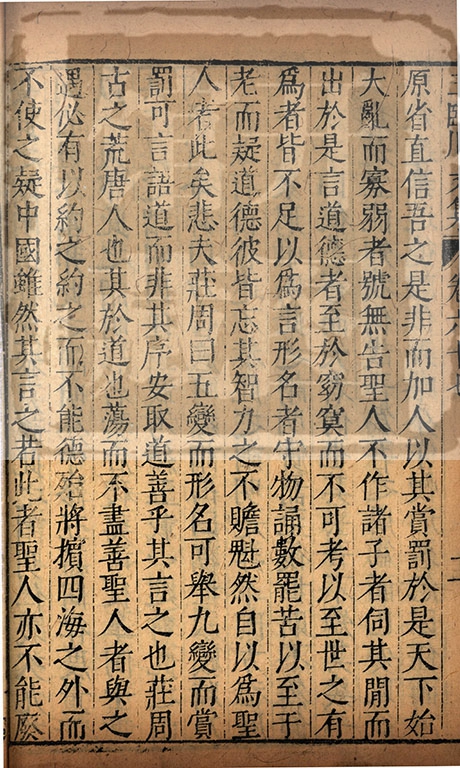 原省直信吾之是非而加人以其賞罰於是天下始
大亂而寡弱者號無告聖人不作諸子者伺其閒而
出於是言道德者至於窈冥而不可考以至世之有
爲者皆不足以爲言形名者守物誦數罷苦以至于
老而疑道德彼皆忘其智力之不贍魁然自以爲聖
人者此矣悲夫莊周曰五變而形名可舉九變而賞
罰可言語道而非其序安取道善乎其言之也莊周
古之荒唐人也其於道也蕩而不盡善聖人者與之
遇必有以約之約之而不能德殆將擯四海之外而
不使之疑中國雖然其言之若此者聖人亦不能廢